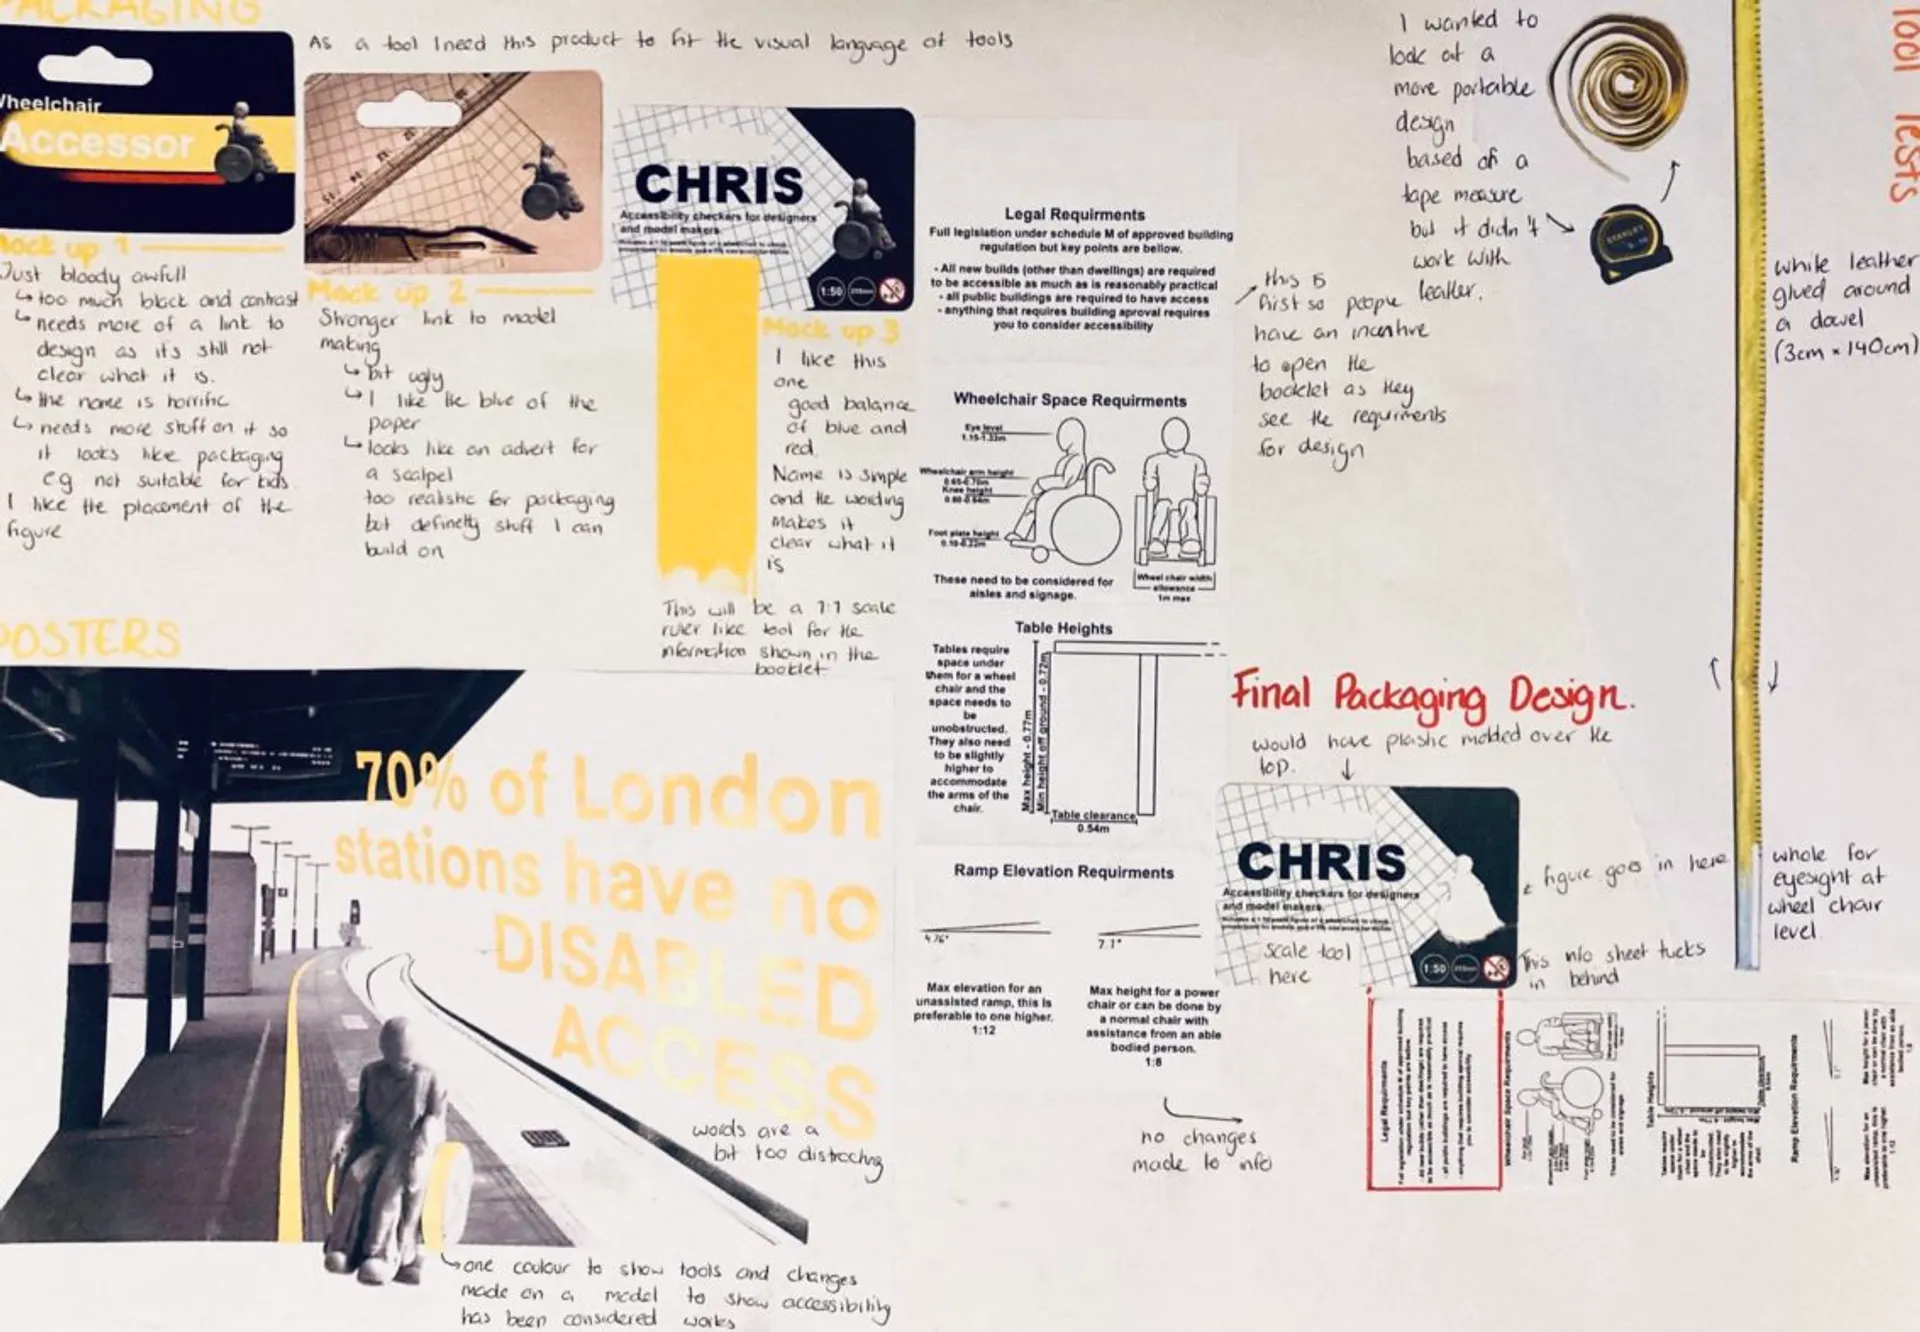 PACKAGING
As a tool I need this product to fit the visual language of tools
Wheelchair
Accessor
Mock up 1
Just bloody awfull
↳ too much black and contrast
↳ needs more of a link to
design as it's still not
clear what it is.
↳ the name is horrific
↳ needs more stuff on it so
it looks like packaging
e.g not suitable for kids.
I like the placement of the
figure
Mock up 2
Stronger link to model
making
↳ bit ugly
↳ I like the blue of the
paper
↳ looks like an advert for
a scalpel
too realistic for packaging
but definetly stuff I can
build on
CHRIS
Accessibility checkers for designers
and model makers
1:50
Mock up 3
I like this
one
good balance
of blue and
red.
Name is simple
and the wording
makes it
clear what it
is
This will be a 1:1 scale
ruler like tool for the
information shown in the
booklet
Legal Requirments
Full legislation under schedule M of approved building
regulation but key points are bellow.
- All new builds (other than dwellings) are required
to be accessible as much as is reasonably practical
- all public buildings are required to have access
- anything that requires building aproval requires
you to consider accessibility
this is
first so people
have an incentive
to open the
booklet as they
see the requirments
for design
Wheelchair Space Requirments
Eye level
1.15-1.33m
Wheelchair arm height
Knee height
Foot plate height
These need to be considered for
aisles and signage.
Wheel chair width
allowance
1m max
Table Heights
Tables require
space under
them for a wheel
chair and the
space needs to
be
unobstructed.
They also need
to be slightly
higher to
accommodate
the arms of the
chair.
Max height - 0.77m
Min height off ground - 0.72m
Table clearance
0.54m
Ramp Elevation Requirments
4.76°
7.1°
Max elevation for an
unassisted ramp, this is
preferable to one higher.
1:12
Max height for a power
chair or can be done by
a normal chair with
assistance from an able
bodied person.
1:8
no changes
made to info
I wanted to
look at a
more portable
design
based of a
tape measure
but it didn't
work with
leather.
STANLEY
Tool Tests
while leather
glued around
a dowel
(3cm × 140cm)
whole for
eyesight at
wheel chair
level.
Final Packaging Design.
would have plastic molded over the
top.
CHRIS
Accessibility checkers for designers
and model makers
1:50
figure goes in here
Scale tool
here
This info sheet tucks
in behind
Legal Requirments
Wheelchair Space Requirments
Table Heights
Ramp Elevation Requirments
POSTERS
70% of London
stations have no
DISABLED
ACCESS
words are a
bit too distracting
one coulour to show tools and changes
made on a model to show accessibility
has been considered works